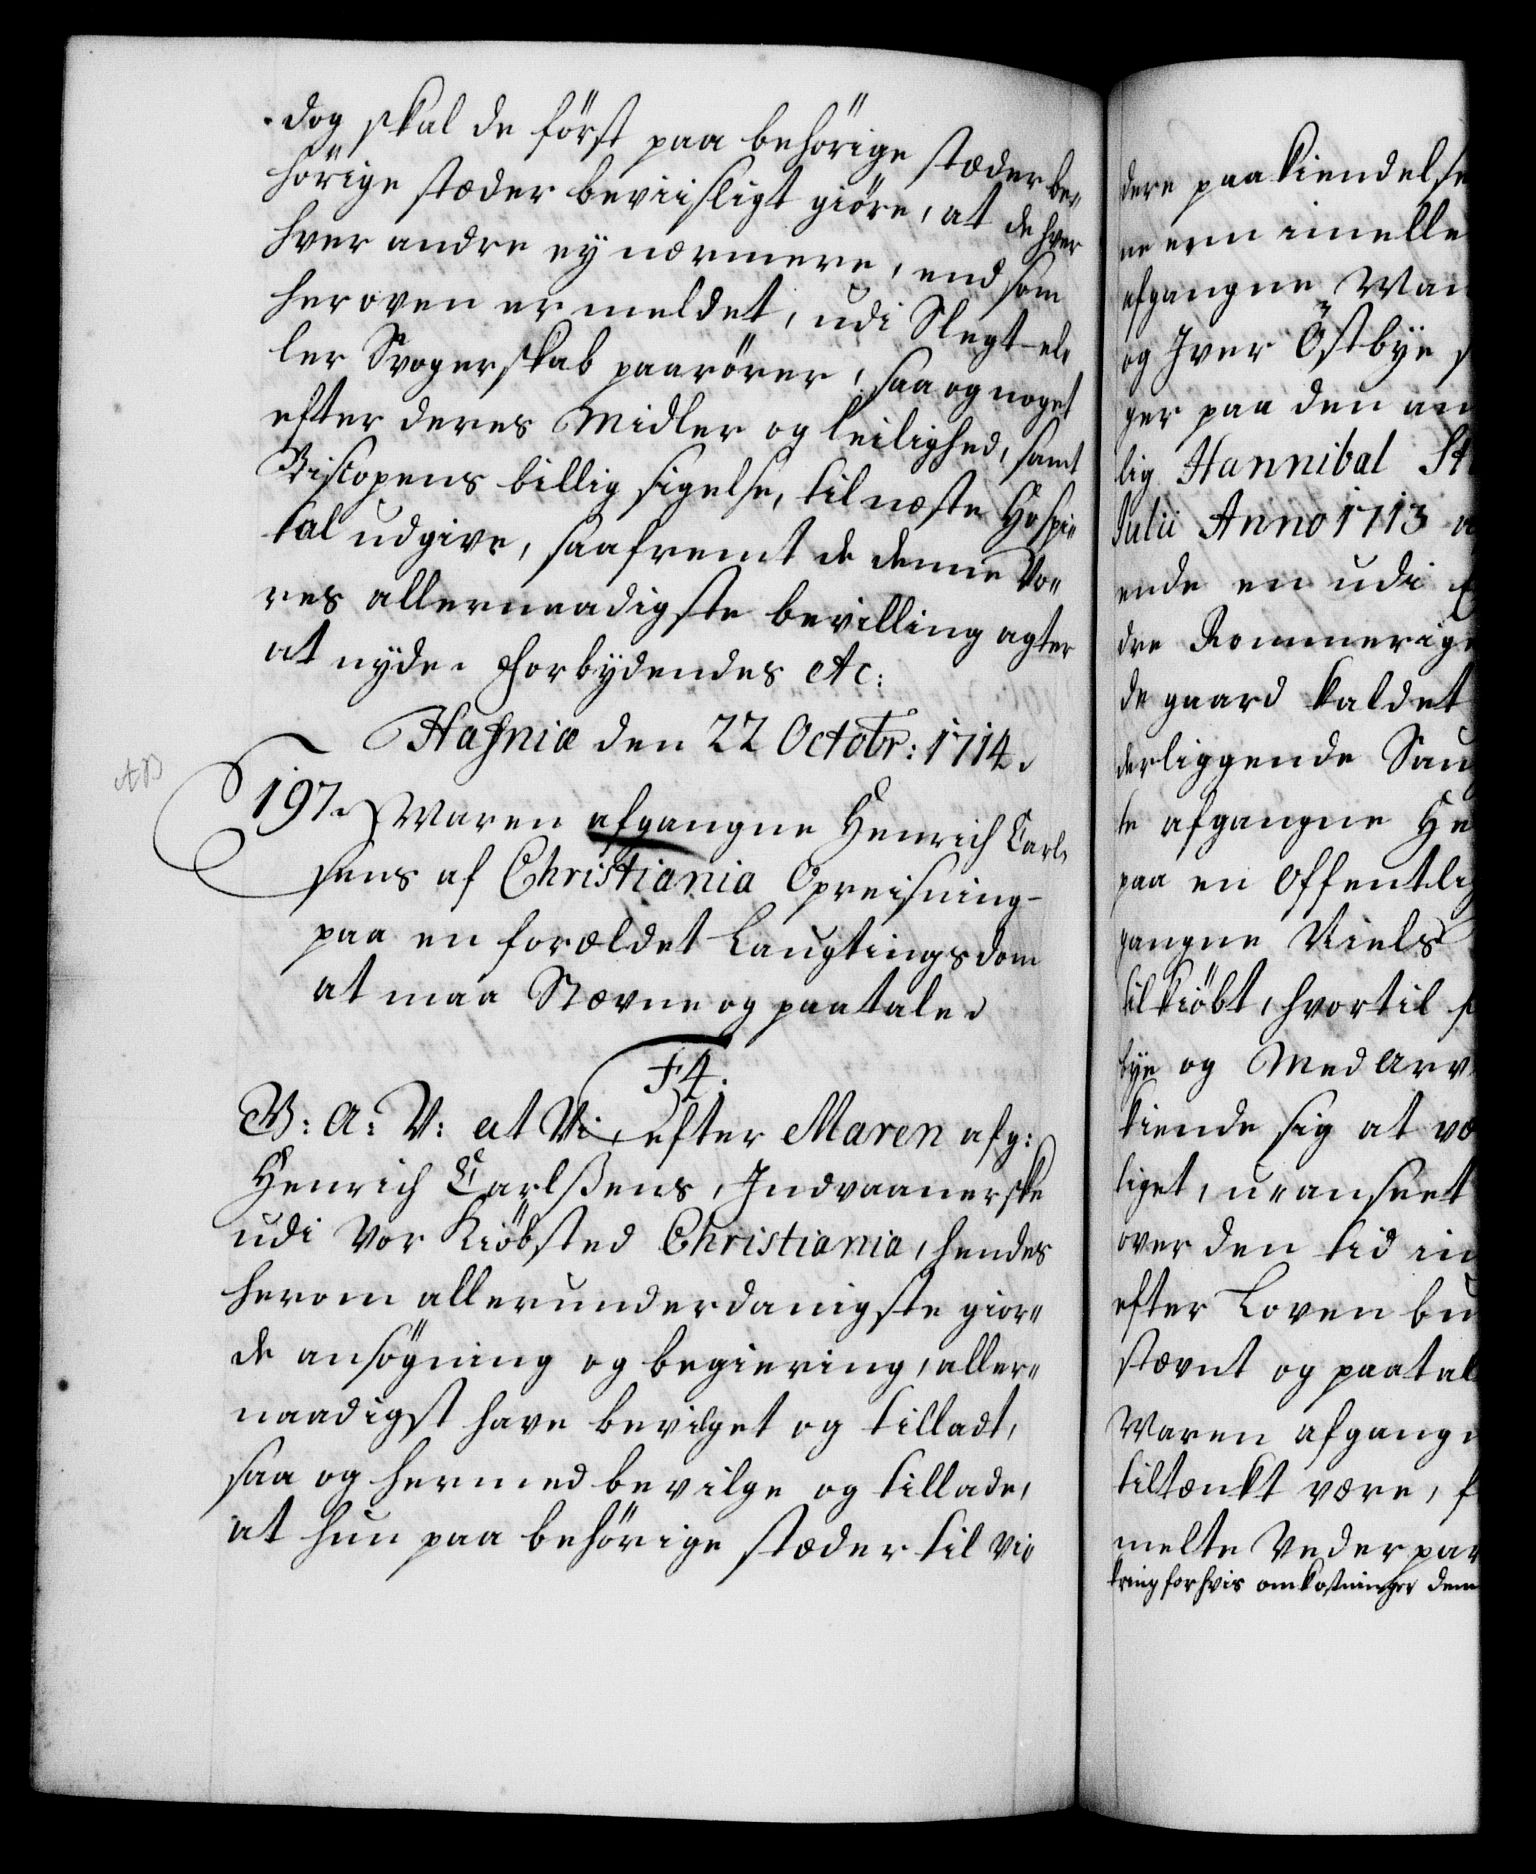 dog skal de först paa behörige stæder be„
hörige stæder beviisligt giöre, at de hver
hver andre ey nærmere, end som
her oven er meldet, udi Slegt el„
ler Svogerskab paarörer, saa og noget
efter deres Midler og leilighed, samt
Biscopens billig sigelse, til næste Hospi„
tal udgive, saafremt de denne Vo„
res allernaadigste bevilling agter
at nyde. Forbydendes etc:
Hafniæ den 22 Octobr: 1714.
197. Maren afgangne Henrich Carl„
sens af Christiania Opreisning
paa en forældet Laugtingsdom
at maa Stævne og paatale.
F4.
G: A: V: at Vi, efter Maren afg:
Henrich Carlßens, Indvaanerske
udi Vor Kiöbsted Christiania, hendes
herom allerunderdanigste gior„
de ansögning og begiering, aller„
naadigst have bevilget og tilladt,
saa og hermed bevilge og tillade,
at hun paa behörige stæder til vi„
dere paakiendelse
ne em imelle
afgangne Mar
og Iver Östbye s
ger paa den an
lig Hannibal St
Julii Anno 1713 a
ende en udi
dre Rommerige
de gaard kaldet
derliggende Sau
te afgangne He
paa en Offentlig
gangne Niels
tilkiöbt, hvortil s
bye og Med Arv
kiende sig at væ
tiget, u-anseet
over den tid in
efter Loven bu
stævnt og paatal
Maren afgangn
tiltænkt være, f
melte Vederpar
kring for hvis omkostninger dem